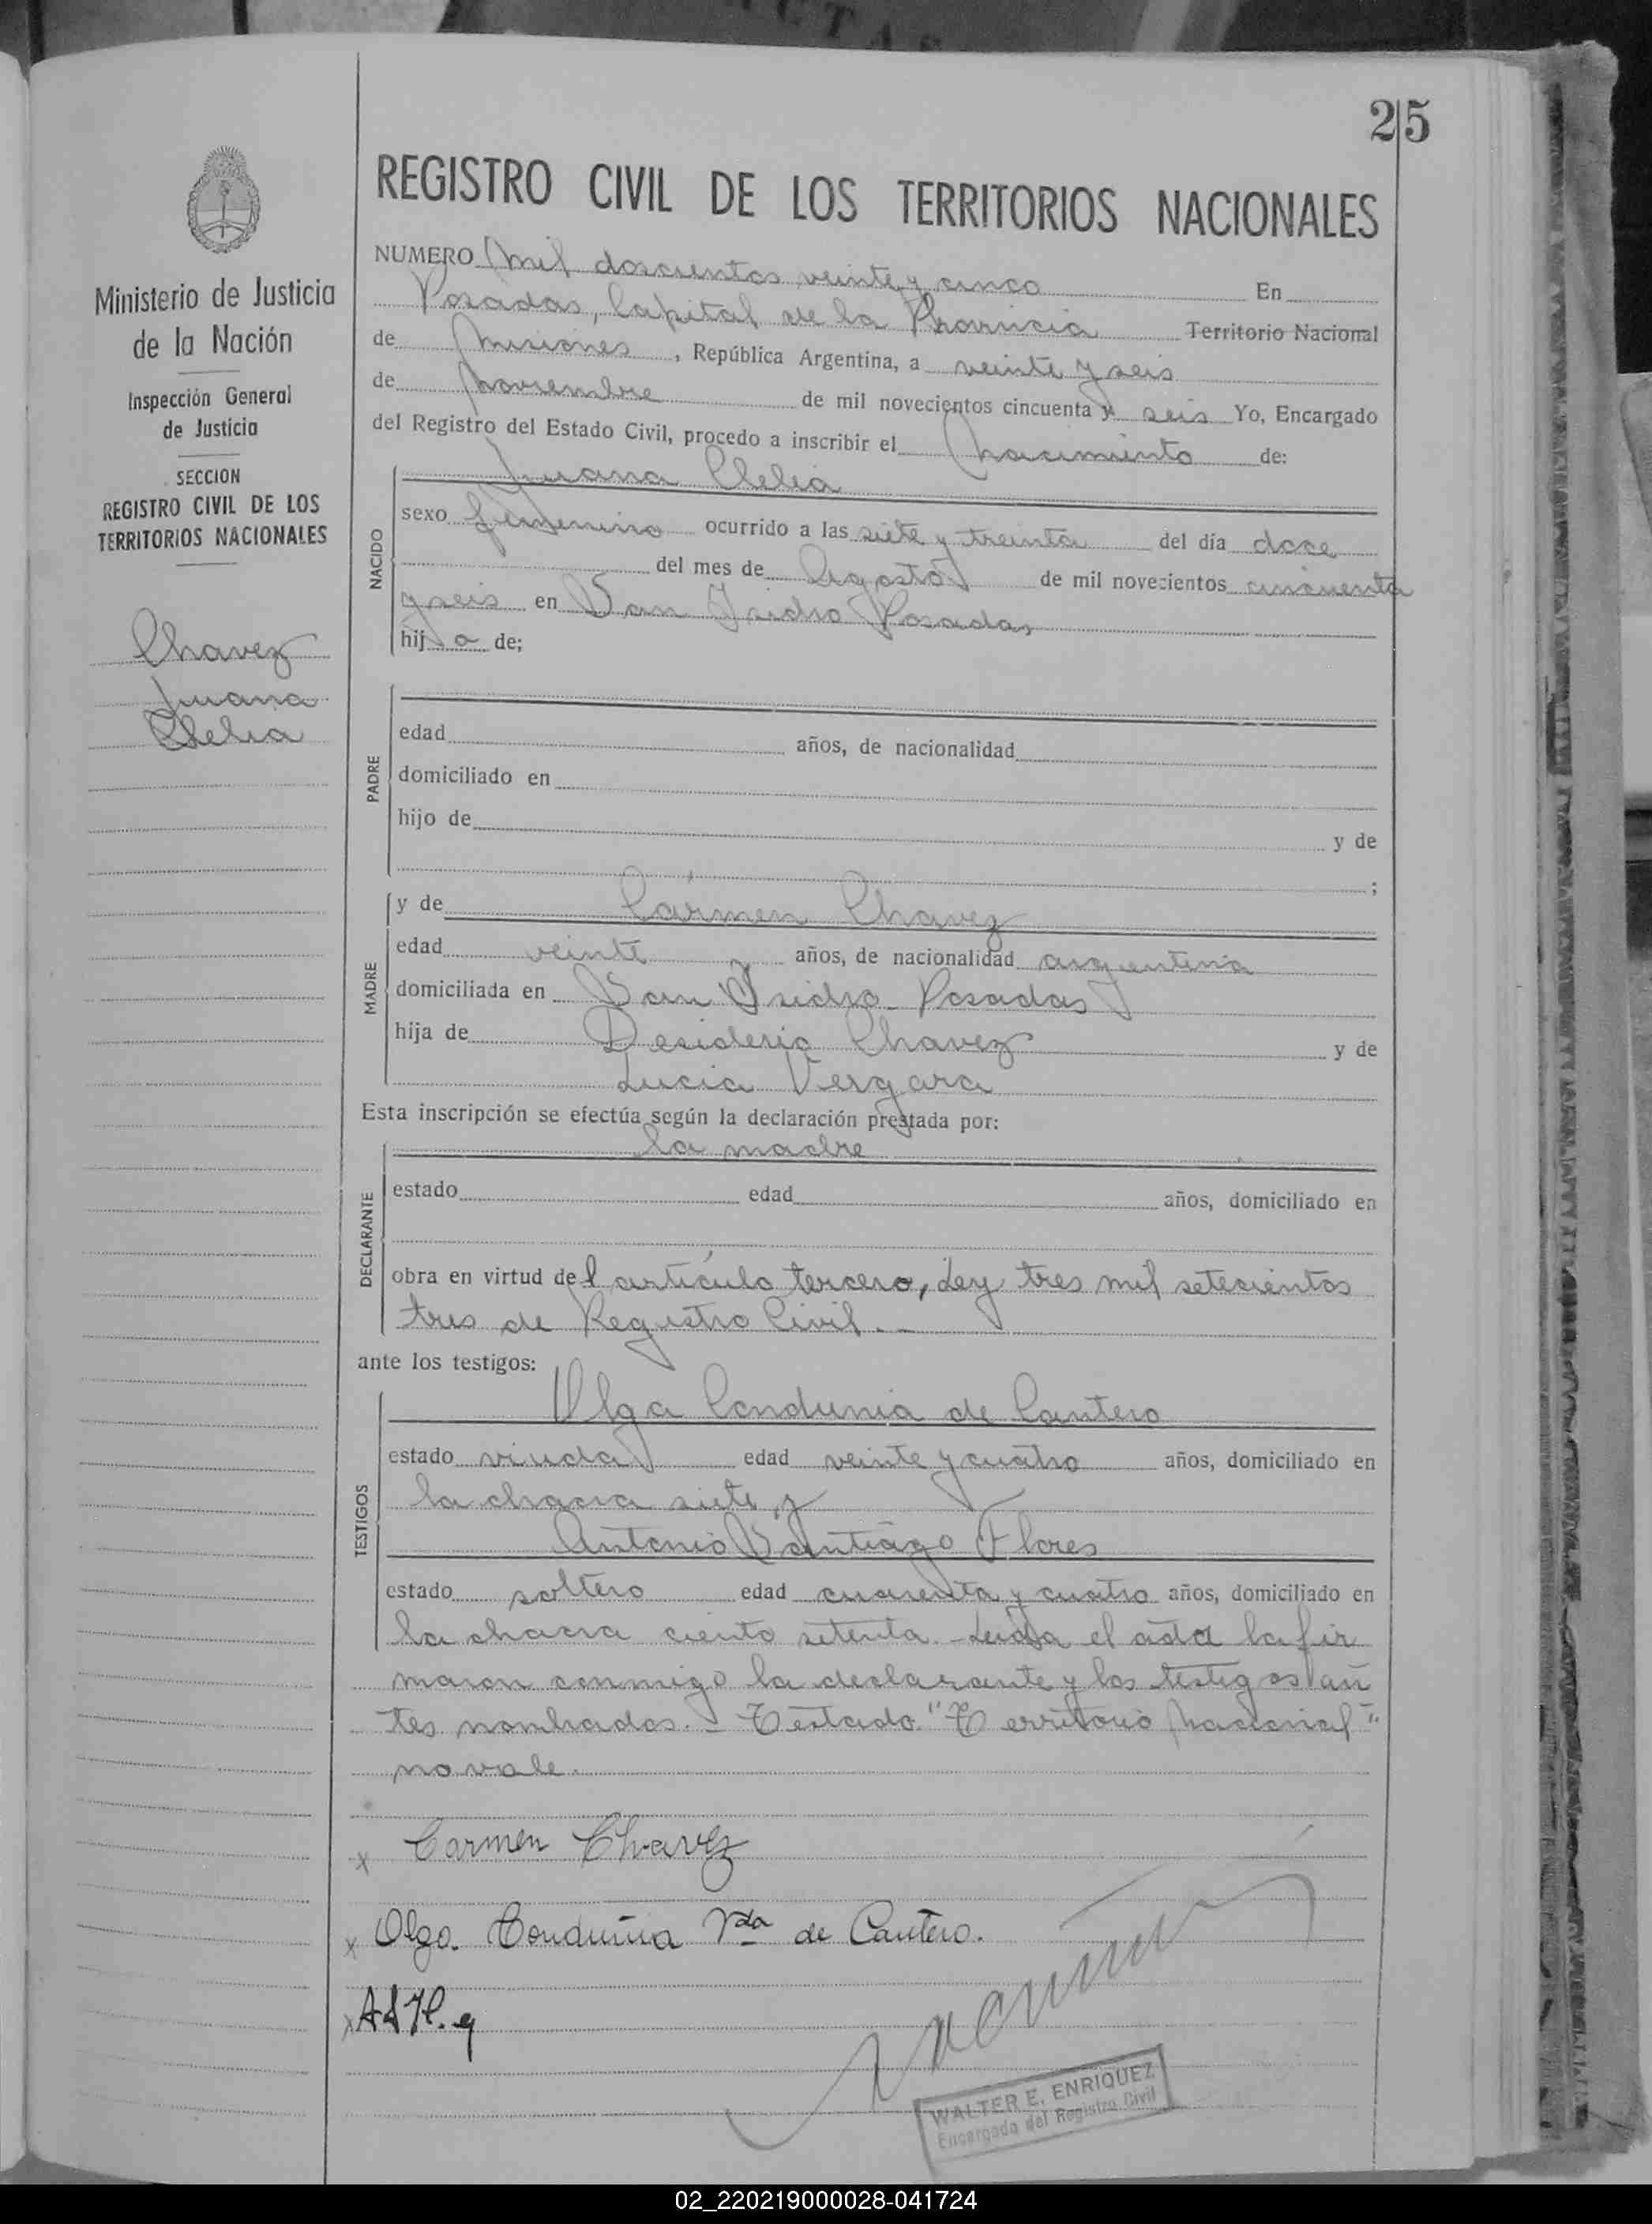 25
REGISTRO CIVIL DE LOS TERRITORIOS NACIONALES
Ministerio de Justicia
de la Nación
Inspección General
de Justicia
SECCION
REGISTRO CIVIL DE LOS
TERRITORIOS NACIONALES
Chavez
Juana
Clelia
NUMERO mil doscientos veinte y cinco En
Posadas, Capital de la Provincia Territorio Nacional
de Misiones, República Argentina, a veinte y seis
de noviembre de mil novecientos cincuenta y seis Yo, Encargado
del Registro del Estado Civil, procedo a inscribir el nacimiento de:
Juana Clelia
NACIDO
sexo femenino ocurrido a las siete y treinta del día doce
del mes de Agosto de mil novecientos cincuenta
y seis en San Isidro Posadas
hija de;
PADRE
edad años, de nacionalidad
domiciliado en
hijo de y de
;
MADRE
y de Cármen Chavez
edad veinte años, de nacionalidad argentina
domiciliada en San Isidro Posadas
hija de Desiderio Chavez y de
Lucia Vergara
Esta inscripción se efectúa según la declaración prestada por:
la madre
DECLARANTE
estado edad años, domiciliado en
obra en virtud del artículo tercero, Ley tres mil setecientos
tres de Registro Civil.-
ante los testigos:
TESTIGOS
Olga Condunia de Cantero
estado viuda edad veinte y cuatro años, domiciliado en
la chacra siete y
Antonio Santiago Flores
estado soltero edad cuarenta y cuatro años, domiciliado en
la chacra ciento setenta.- Leida el acta la fir
maron conmigo la declarante y los testigos an
tes nombrados.- Testado "Territorio Nacional"
no vale.
x Carmen Chavez
x Olga Conduñia Vda de Cantero.
x
WALTER E. ENRIQUEZ
Encargado del Registro Civil
02_220219000028-041724